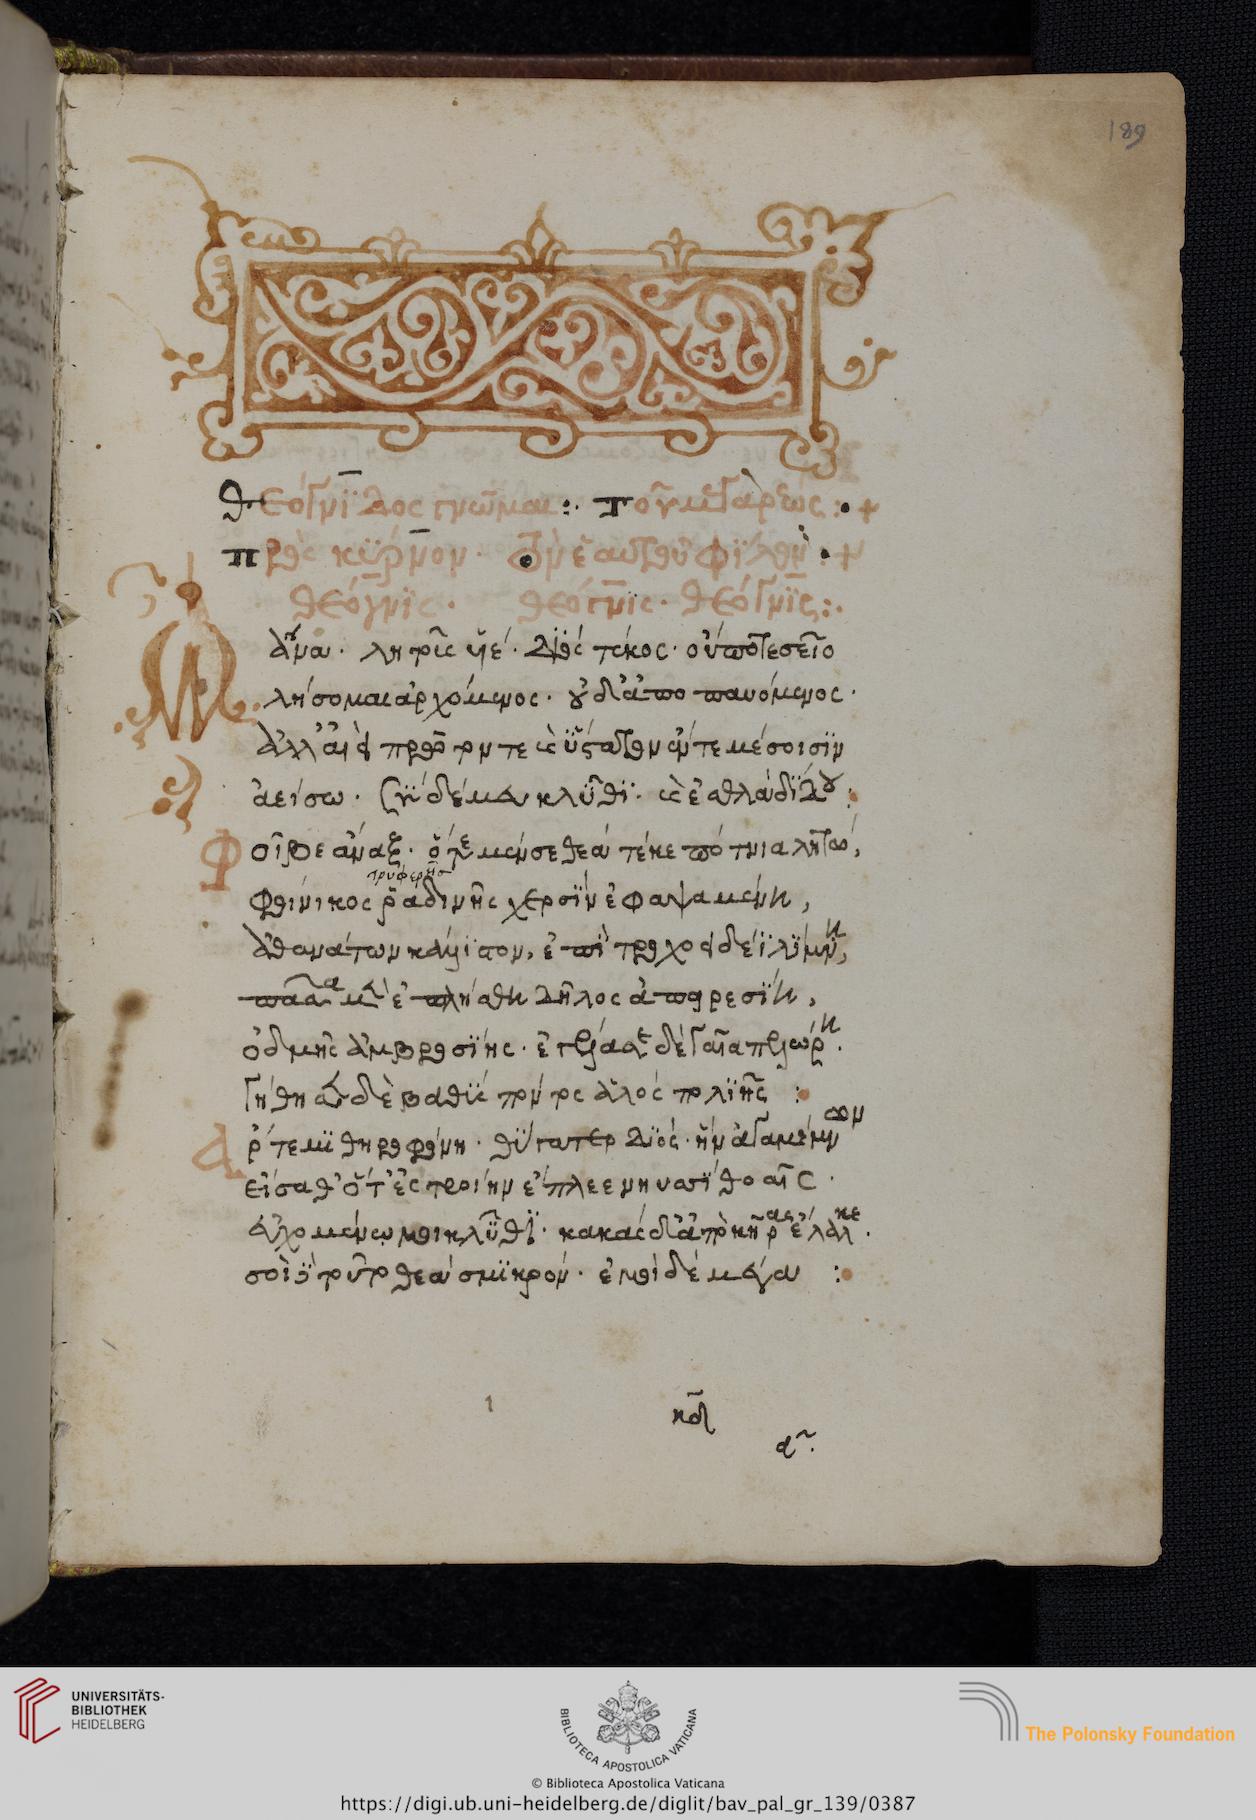 189
θεόγνιδος γνῶμαι :· τοῦ μεγαρέως : +
πρὸς κύρνον · ὃν ἑαυτοῦ φίλον · +
θεόγνις · θεόγνις · θεόγνις :·
Ὦ ἄνα · λητοῖς υἱέ · Διὸς τέκος · οὔποτε σεῖο
λήσομαι ἀρχόμενος · οὐδ' ἀποπαυόμενος ·
ἀλλ' αἰεὶ πρῶτόν τε καὶ ὕστατον ἔν τε μέσοισιν
ἀείσω · σὺ δέ μευ κλῦθι · καὶ ἐσθλὰ δίδου :
Φοῖβε ἄναξ · ὅτε μέν σε θεὰ τέκε πότνια λητώ,
τρυφερῆσ
φοίνικος ῥαδινῆς χερσὶν ἐφαψαμένη,
ἀθανάτων κάλλιστον, ἐπὶ τροχοειδέϊ λίμνη,
πᾶσα μὲν ἐπλήσθη Δῆλος ἀπειρεσίη,
ὀδμῆς ἀμβροσίης · ἐγέλασσε δὲ γαῖα πελώρη ·
γήθησεν δὲ βαθὺς πόντος ἁλὸς πολιῆς :
Ἄρτεμι θηροφόνη · θύγατερ Διός · ἣν ἀγαμέμνων
εἵσαθ' ὅτ' ἐς τροίην ἔπλεε νηυσὶ θοαῖς ·
εὐχομένῳ μοι κλῦθι · κακὰς δ' ἀπὸ κῆρας ἔλαλκε ·
σοὶ τοῦτο θεὰ σμικρόν · ἐμοὶ δὲ μέγα :
UNIVERSITÄTS-
BIBLIOTHEK
HEIDELBERG
BIBLIOTECA APOSTOLICA VATICANA
The Polonsky Foundation
© Biblioteca Apostolica Vaticana
https://digi.ub.uni-heidelberg.de/diglit/bav_pal_gr_139/0387